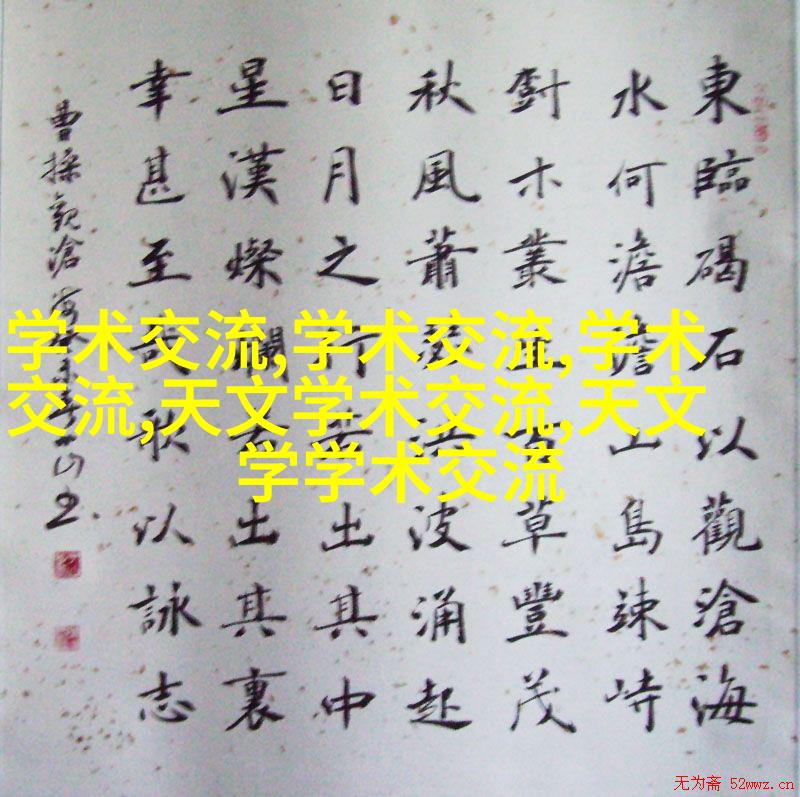 東臨碣石以觀滄海
水何澹澹山島竦峙
尌木叢生百草豐茂
秋風蕭瑟洪波涌起
日月之行若出其中
星漢燦爛若出其裏
幸甚至哉歌以詠志
曹操觀滄海
学术交流,学术交流,学术
交流,天文学术交流,天文
学学术交流
无为斋 52wwz.cn